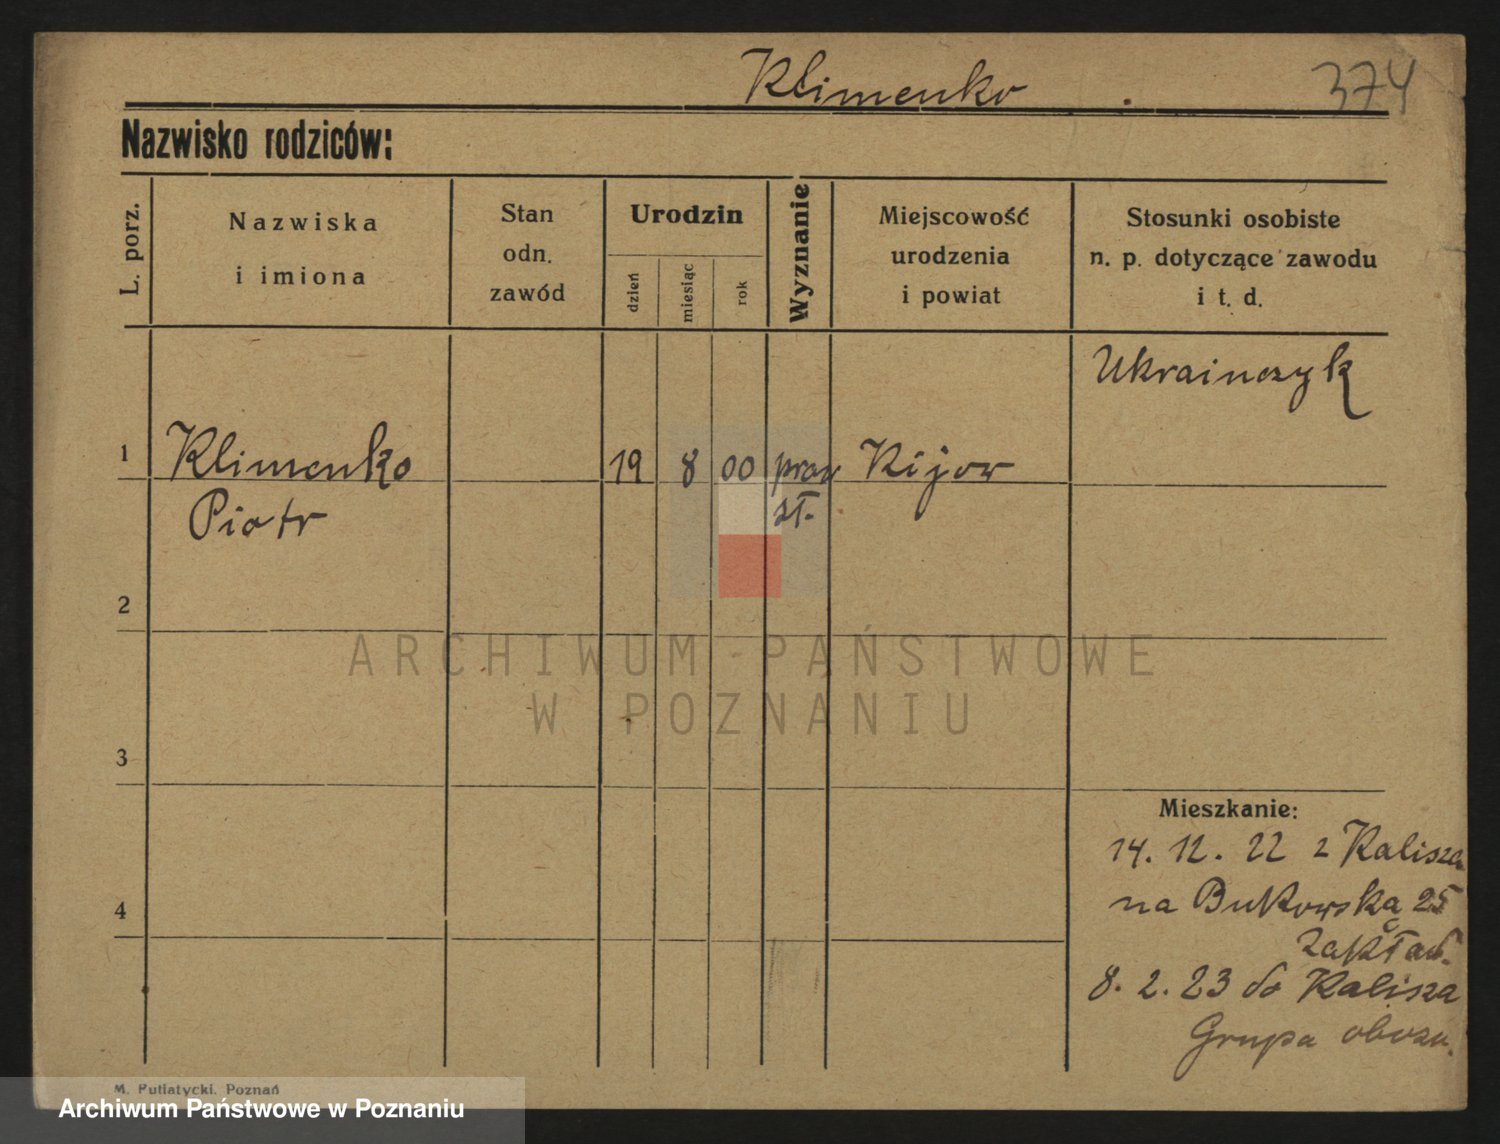 Klimenko .
374
Nazwisko rodziców:
L. porz.
Nazwiska
i imiona
Stan
odn.
zawód
Urodzin
dzień
miesiąc
rok
Wyznanie
Miejscowość
urodzenia
i powiat
Stosunki osobiste
n. p. dotyczące zawodu
i t. d.
Ukrainczyk
1 Klimenko 19 8 00 praw Kijow
Piotr sł.
2
ARCHIWUM PAŃSTWOWE
W POZNANIU
3
Mieszkanie:
14. 12. 22 z Kalisza
4
na Bukowską 25
zakład.
8. 2. 23 do Kalisza
Grupa obozu.
M. Putiatycki. Poznań
Archiwum Państwowe w Poznaniu